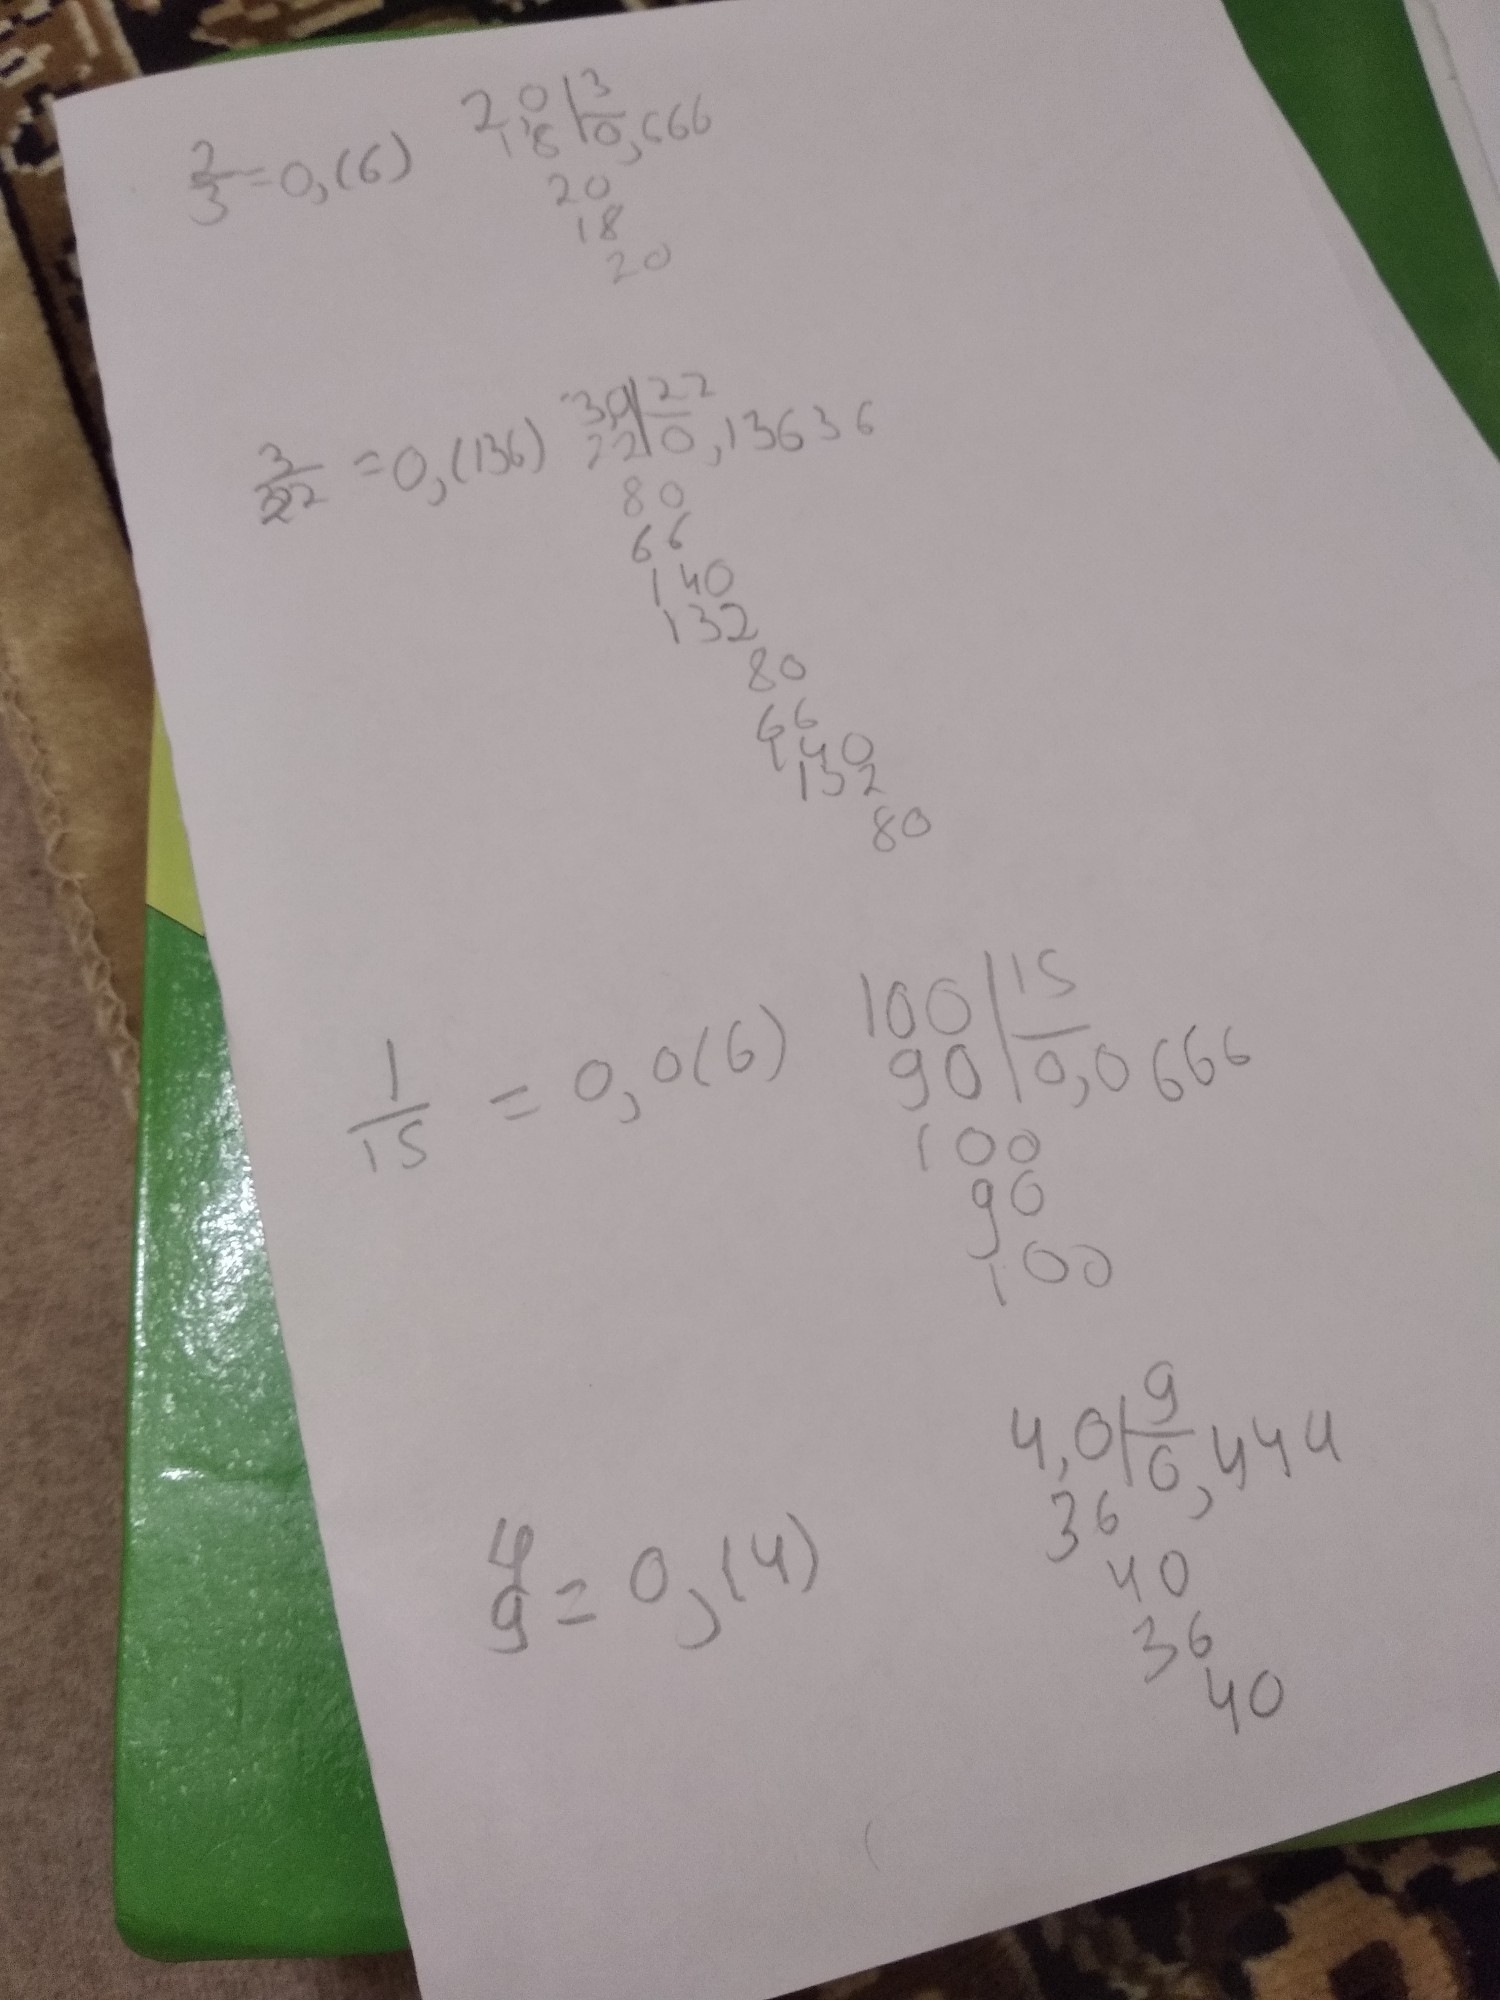 2/3 = 0,(6) 20 | 3
18 | 0,666
20
18
20
3/22 = 0,(136) 30 | 22
22 | 0,13636
80
66
140
132
80
66
140
132
80
1/15 = 0,0(6) 100 | 15
90 | 0,0666
100
90
100
4/9 = 0,(4) 4,0 | 9
36 | 0,444
40
36
40